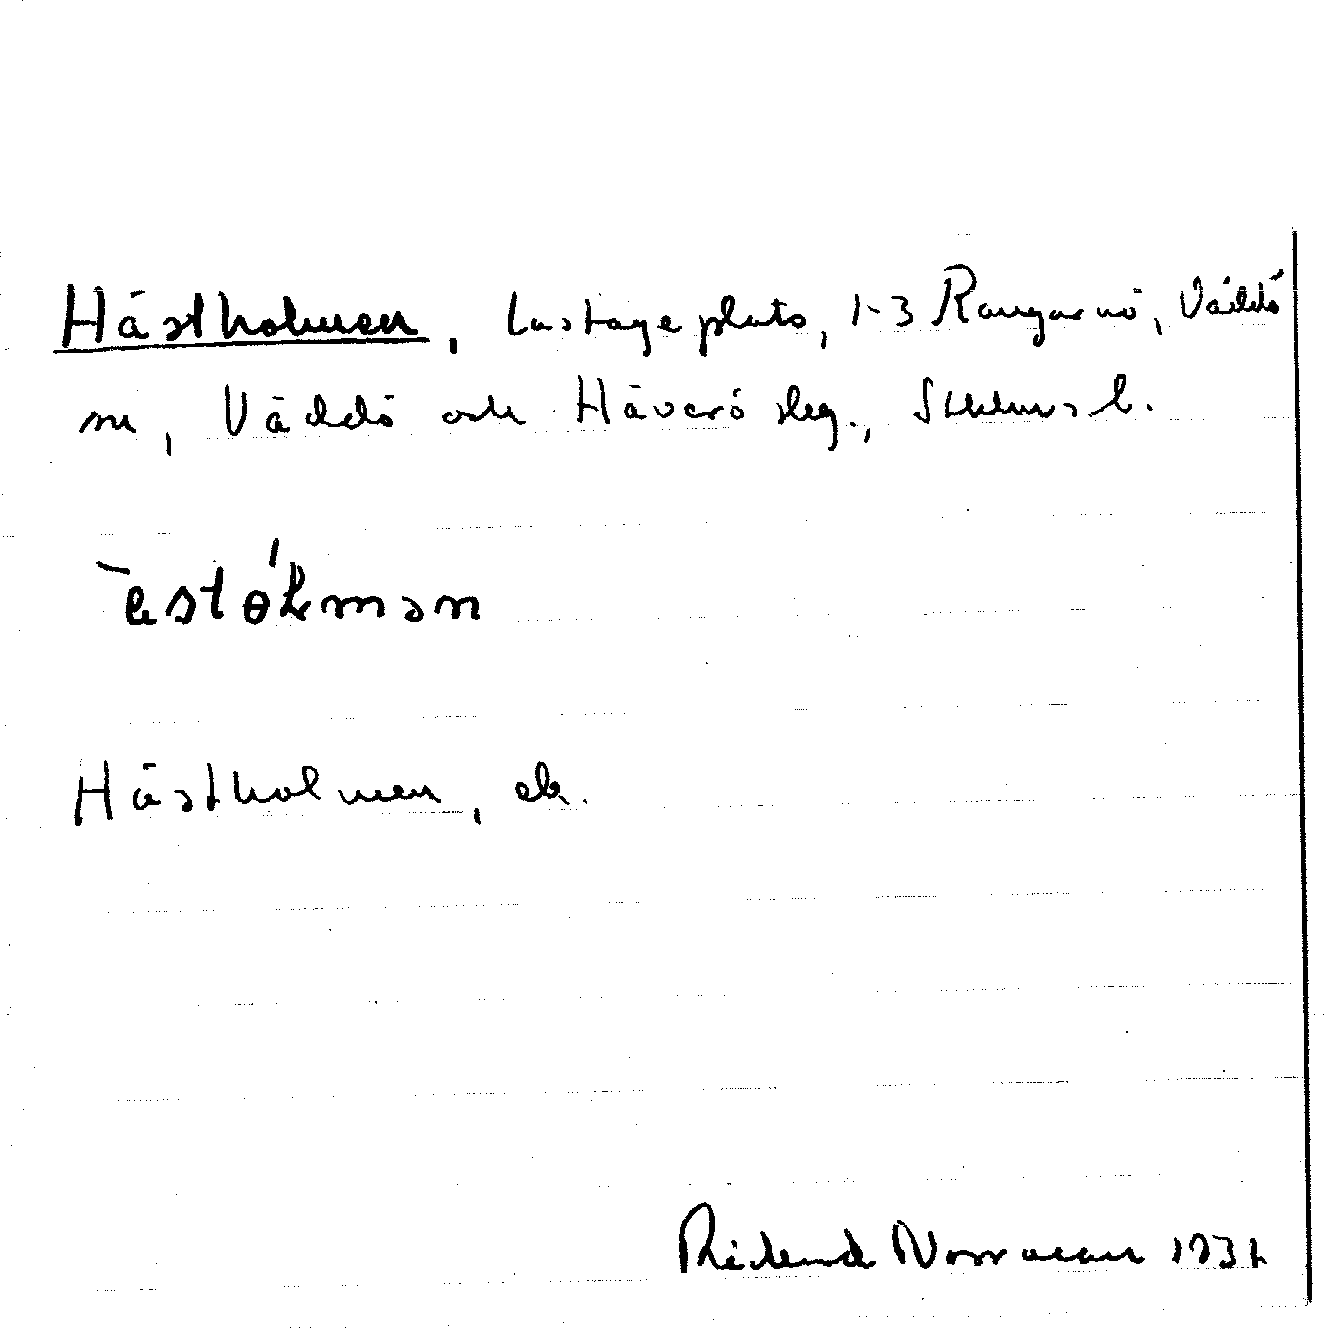 Hästholmen, Lastageplats, 1-3 Rangarnö, Väddö
sn, Väddö och Häverö skg., Stklms l.
ɛstɵ́ƚmən
Hästholmen, ek.
Rickard Norrman